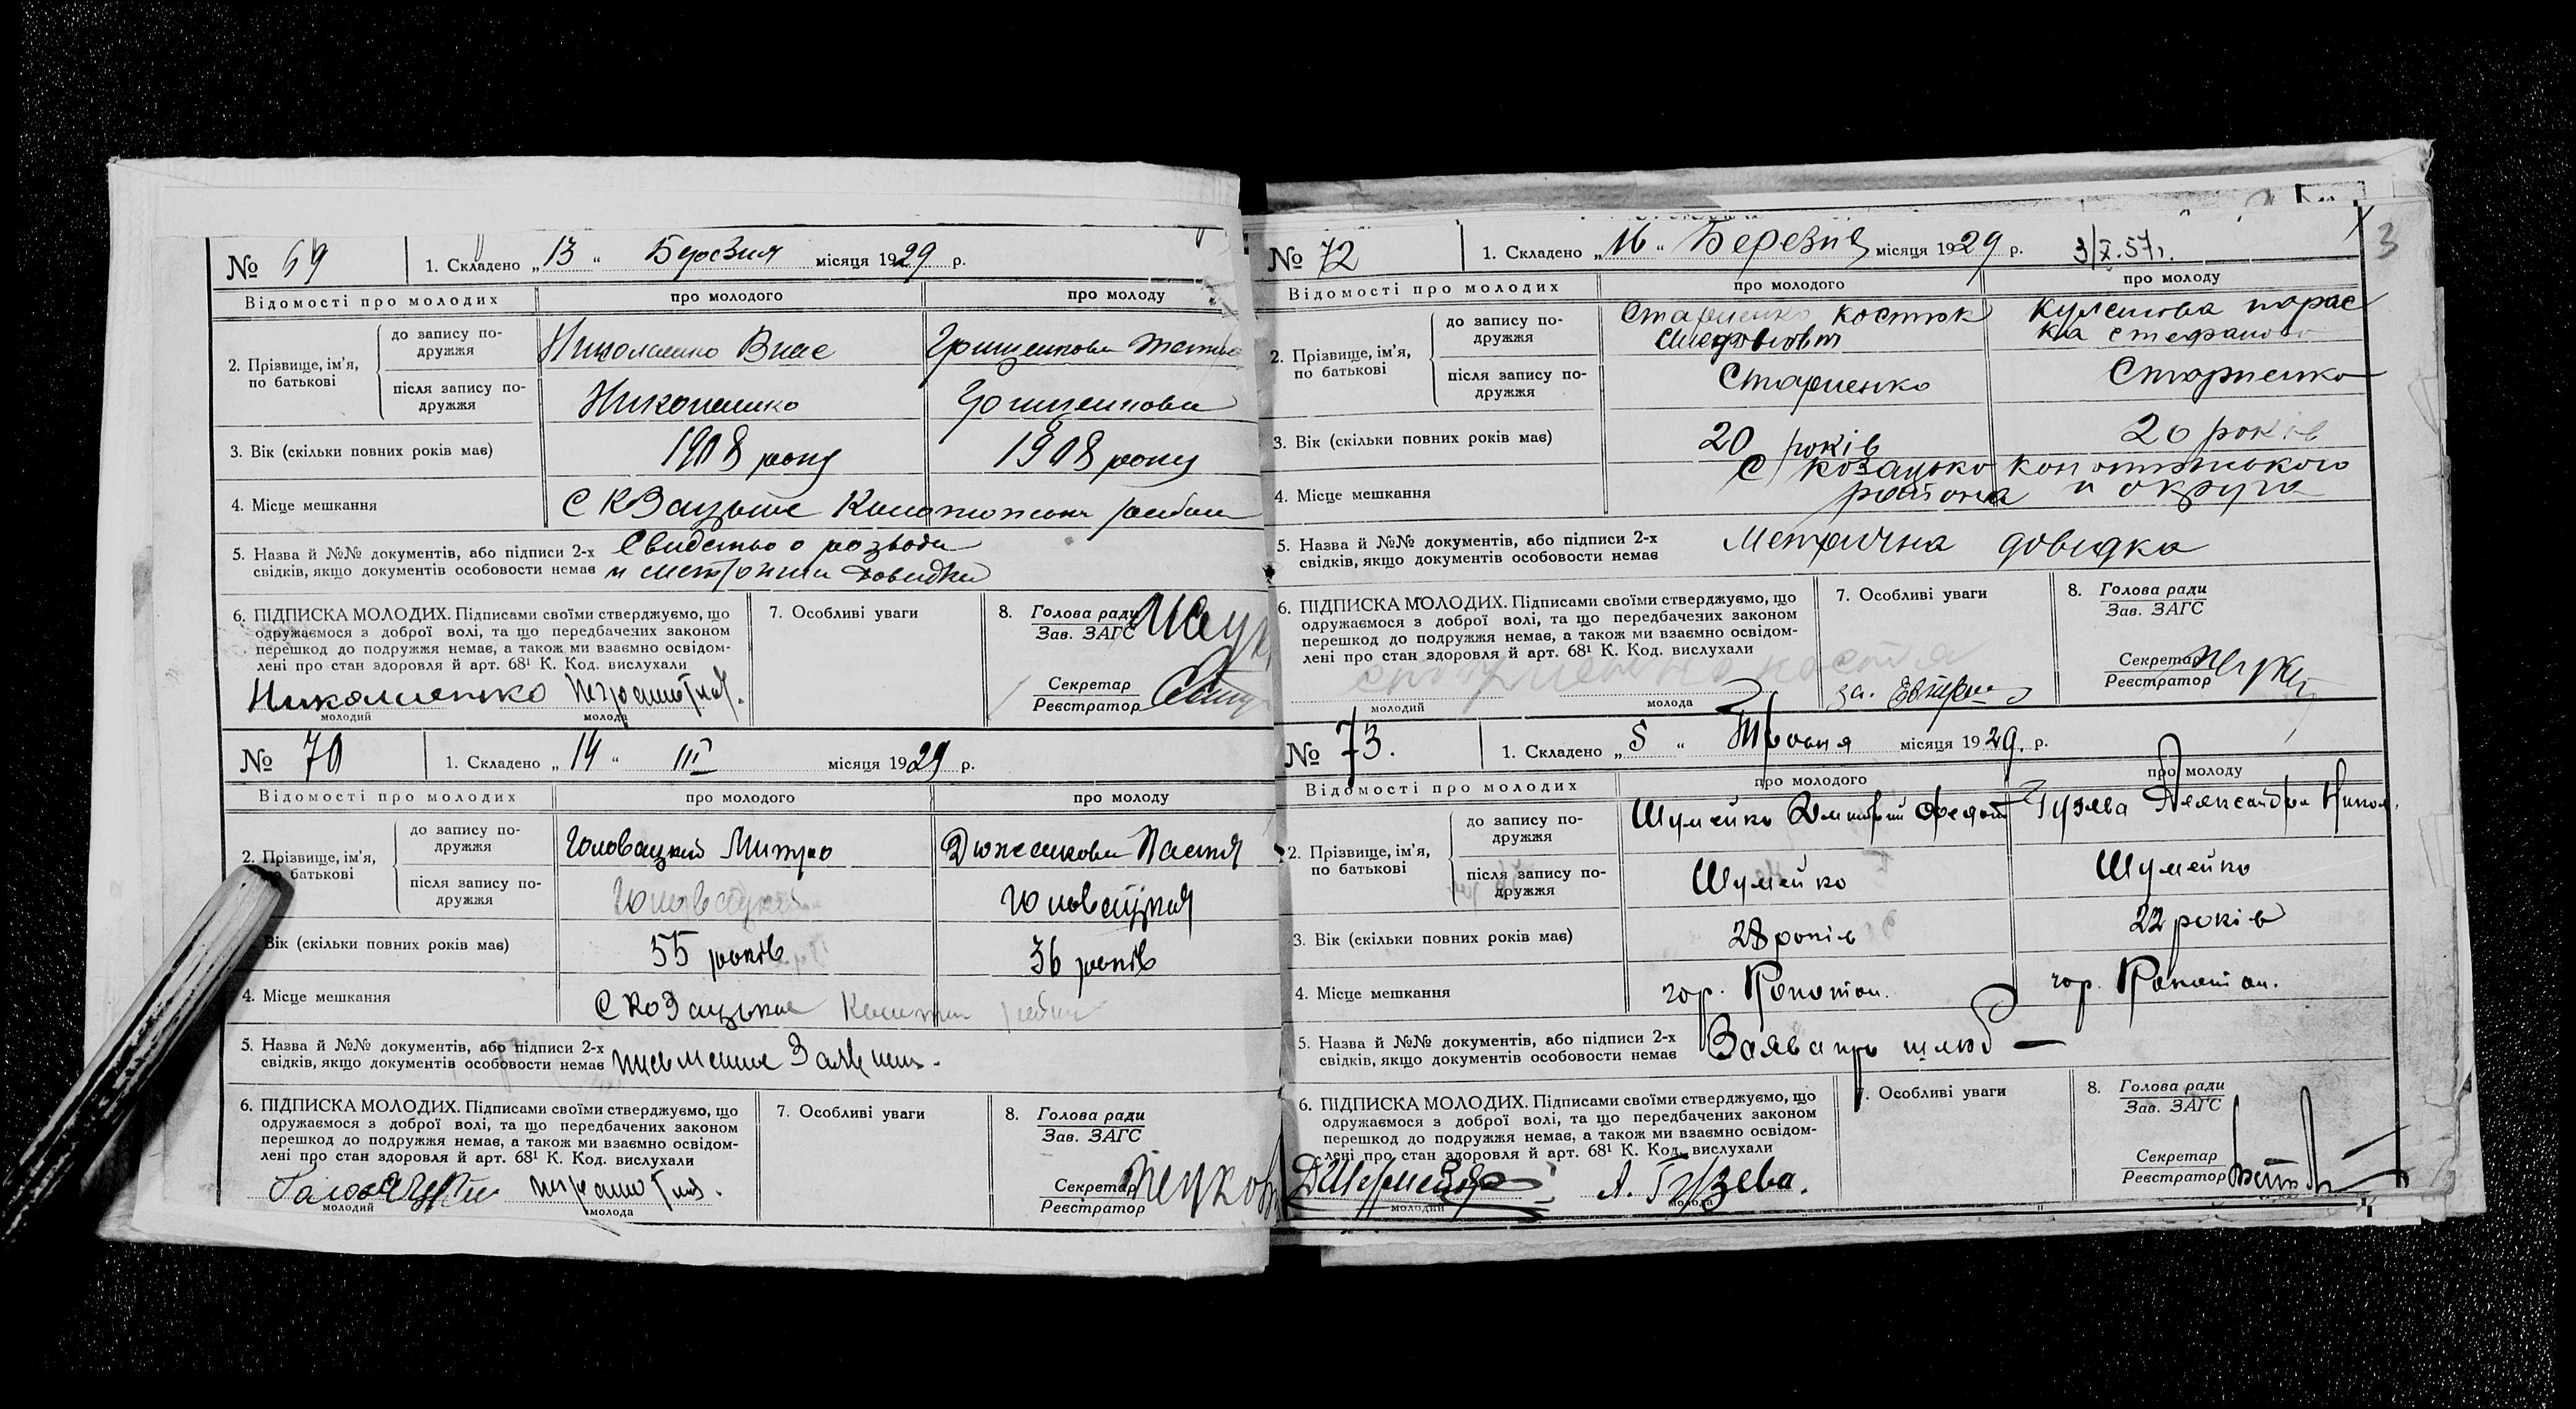 № 69 1. Складено „13“ Березня місяця 1929 р.
Відомості про молодих про молодого про молоду
2. Прізвище, ім’я, по батькові
до запису подружжя Николаенко Влас Грищенкова
після запису подружжя Николаенко Грищенкова
3. Вік (скільки повних років має) 1908 року 1908 року
4. Місце мешкання С Козацьке
5. Назва й №№ документів, або підписи 2-х Свидетство о розводе
свідків, якщо документів особовости немає и довидки
6. ПІДПИСКА МОЛОДИХ. Підписами своїми стверджуємо, що
одружаємося з доброї волі, та що передбачених законом
перешкод до подружжя немає, а також ми взаємно освідом-
лені про стан здоровля й арт. 68¹ К. Код. вислухали
Николаенко
молодий молода
7. Особливі уваги
8. Голова ради
Зав. ЗАГС
Секретар
Реєстратор
№ 70 1. Складено „14“ III місяця 1929 р.
Відомості про молодих про молодого про молоду
2. Прізвище, ім’я, по батькові
до запису подружжя Головацкий Митро
після запису подружжя Головацкий Головацкая
Вік (скільки повних років має) 55 років 36 років
4. Місце мешкання С Козацьке
5. Назва й №№ документів, або підписи 2-х
свідків, якщо документів особовости немає
6. ПІДПИСКА МОЛОДИХ. Підписами своїми стверджуємо, що
одружаємося з доброї волі, та що передбачених законом
перешкод до подружжя немає, а також ми взаємно освідом-
лені про стан здоровля й арт. 68¹ К. Код. вислухали
молодий молода
7. Особливі уваги
8. Голова ради
Зав. ЗАГС
Секретар
Реєстратор
3
№ 72 1. Складено „16“ Березня місяця 1929 р. 3/X.57г.
Відомості про молодих про молодого про молоду
2. Прізвище, ім’я, по батькові
до запису подружжя Стариенко Костюк Кулешова парас
ка стефанова
після запису подружжя Стариенко Стариенко
3. Вік (скільки повних років має) 20 років 20 років
4. Місце мешкання С Козацько Конотопського
района и округа
5. Назва й №№ документів, або підписи 2-х Метрична довидка
свідків, якщо документів особовости немає
6. ПІДПИСКА МОЛОДИХ. Підписами своїми стверджуємо, що
одружаємося з доброї волі, та що передбачених законом
перешкод до подружжя немає, а також ми взаємно освідом-
лені про стан здоровля й арт. 68¹ К. Код. вислухали
молодий молода
7. Особливі уваги
8. Голова ради
Зав. ЗАГС
Секретар
Реєстратор
№ 73. 1. Складено „5“ Травня місяця 1929. р.
Відомості про молодих про молодого про молоду
2. Прізвище, ім’я, по батькові
до запису подружжя Шумейко Дмитрий Федот Гузева Александра Никол.
після запису подружжя Шумейко Шумейко
3. Вік (скільки повних років має) 28 років 22 років
4. Місце мешкання гор. Конотоп. гор. Конотоп.
5. Назва й №№ документів, або підписи 2-х Заява про шлюб —
свідків, якщо документів особовости немає
6. ПІДПИСКА МОЛОДИХ. Підписами своїми стверджуємо, що
одружаємося з доброї волі, та що передбачених законом
перешкод до подружжя немає, а також ми взаємно освідом-
лені про стан здоровля й арт. 68¹ К. Код. вислухали
ДШумейко А. Гузева.
молодий молода
7. Особливі уваги
8. Голова ради
Зав. ЗАГС
Секретар
Реєстратор